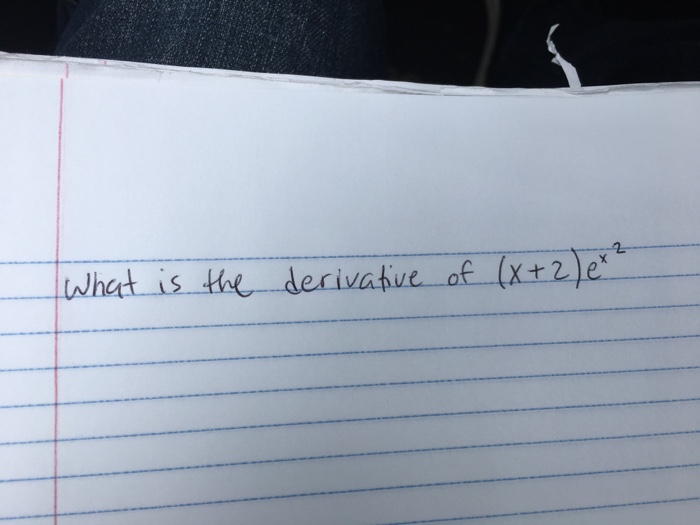 What is the derivative of (x+2)e^x^2